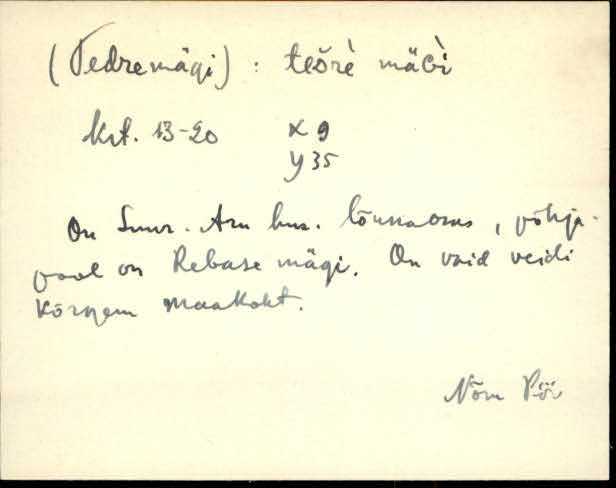 (Tedremägi) : teὅrè mäGì
krt. 13-20 x 9
y 35
On Suur-Aru hnr. lõunaosas, põhja-
pool on Rebase mägi. On vaid veidi
kõrgem maakoht.
Nõm Pöi